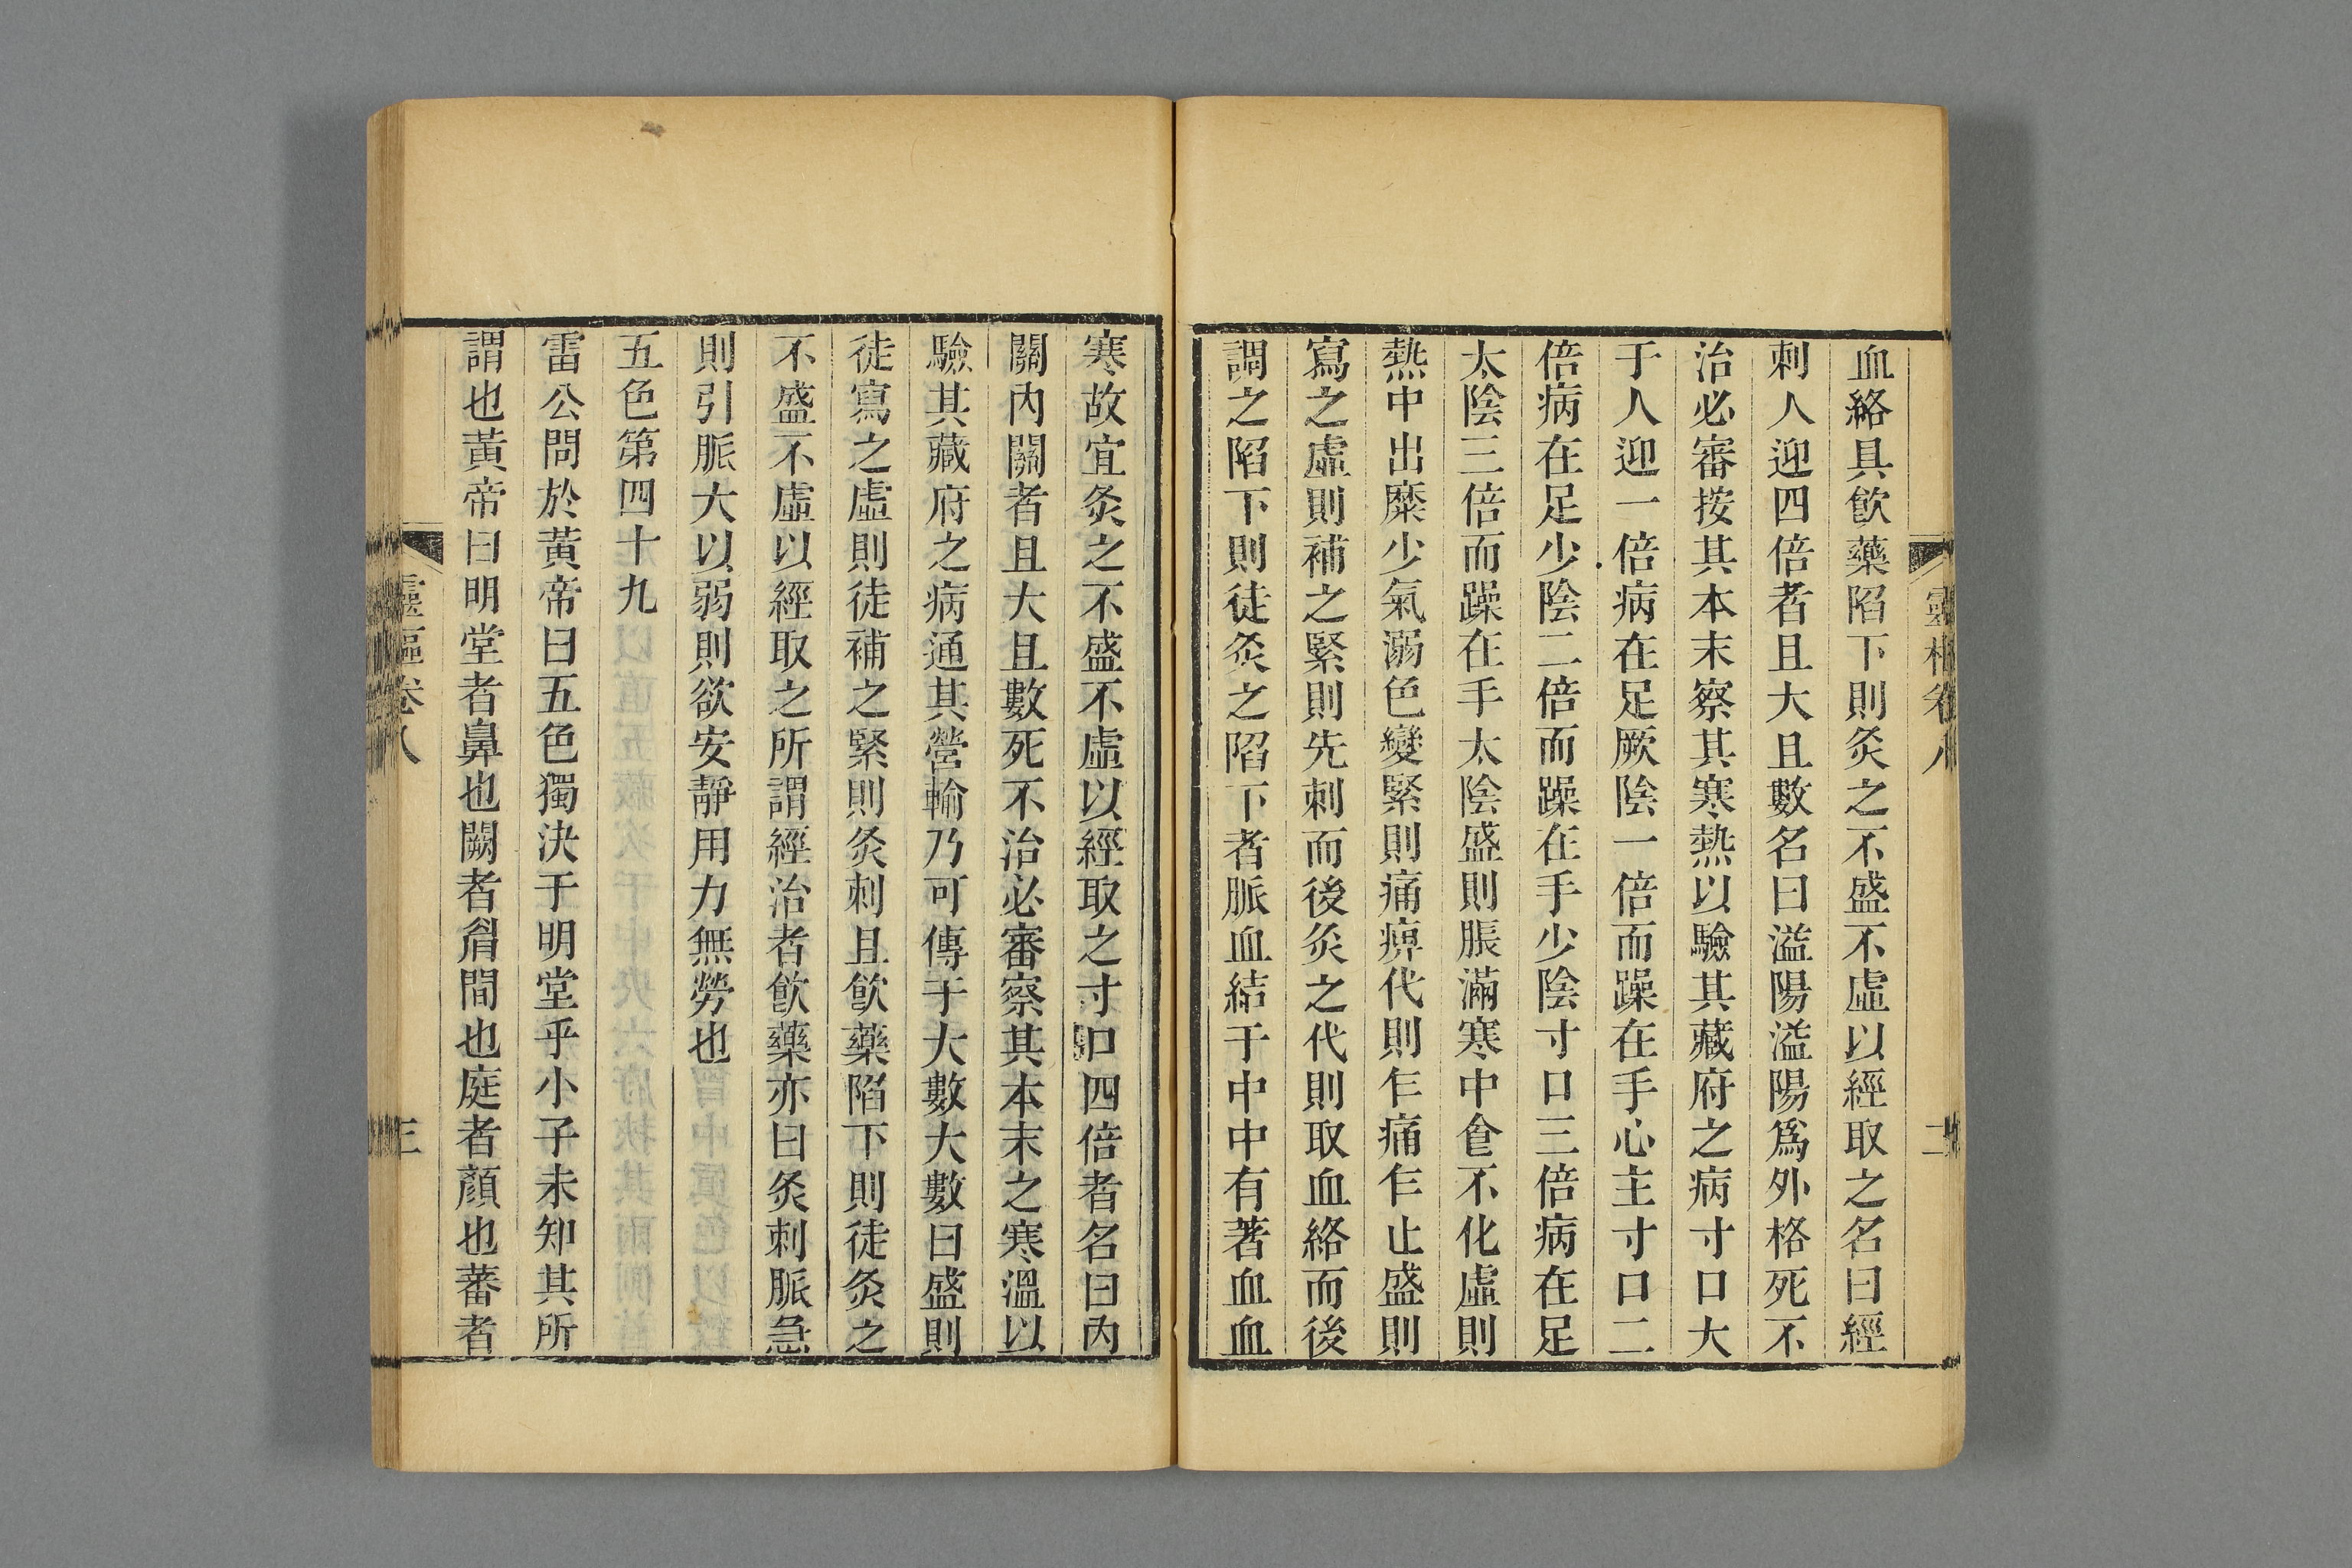 靈樞卷八
二
血絡具飮藥陷下則灸之不盛不虛以經取之名曰經
刺人迎四倍者且大且數名曰溢陽溢陽爲外格死不
治必審按其本末察其寒熱以驗其藏府之病寸口大
于人迎一倍病在足厥陰一倍而躁在手心主寸口二
倍病在足少陰二倍而躁在手少陰寸口三倍病在足
太陰三倍而躁在手太陰盛則脹滿寒中食不化虛則
熱中出糜少氣溺色變緊則痛痹代則乍痛乍止盛則
寫之虛則補之緊則先刺而後灸之代則取血絡而後
調之陷下則徒灸之陷下者脈血結于中中有著血血
寒故宜灸之不盛不虛以經取之寸口四倍者名曰內
關內關者且大且數死不治必審察其本末之寒溫以
驗其藏府之病通其營輸乃可傳于大數大數曰盛則
徒寫之虛則徒補之緊則灸刺且飮藥陷下則徒灸之
不盛不虛以經取之所謂經治者飮藥亦曰灸刺脈急
則引脈大以弱則欲安靜用力無勞也
五色第四十九
雷公問於黃帝曰五色獨決于明堂乎小子未知其所
謂也黃帝曰明堂者鼻也闕者眉間也庭者顏也蕃者
靈樞卷八
三